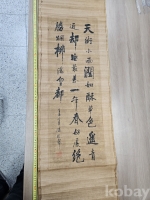 天街小雨潤如酥草色遥看
近却無最是一年春好處絶
勝烟柳滿皇都
kobay